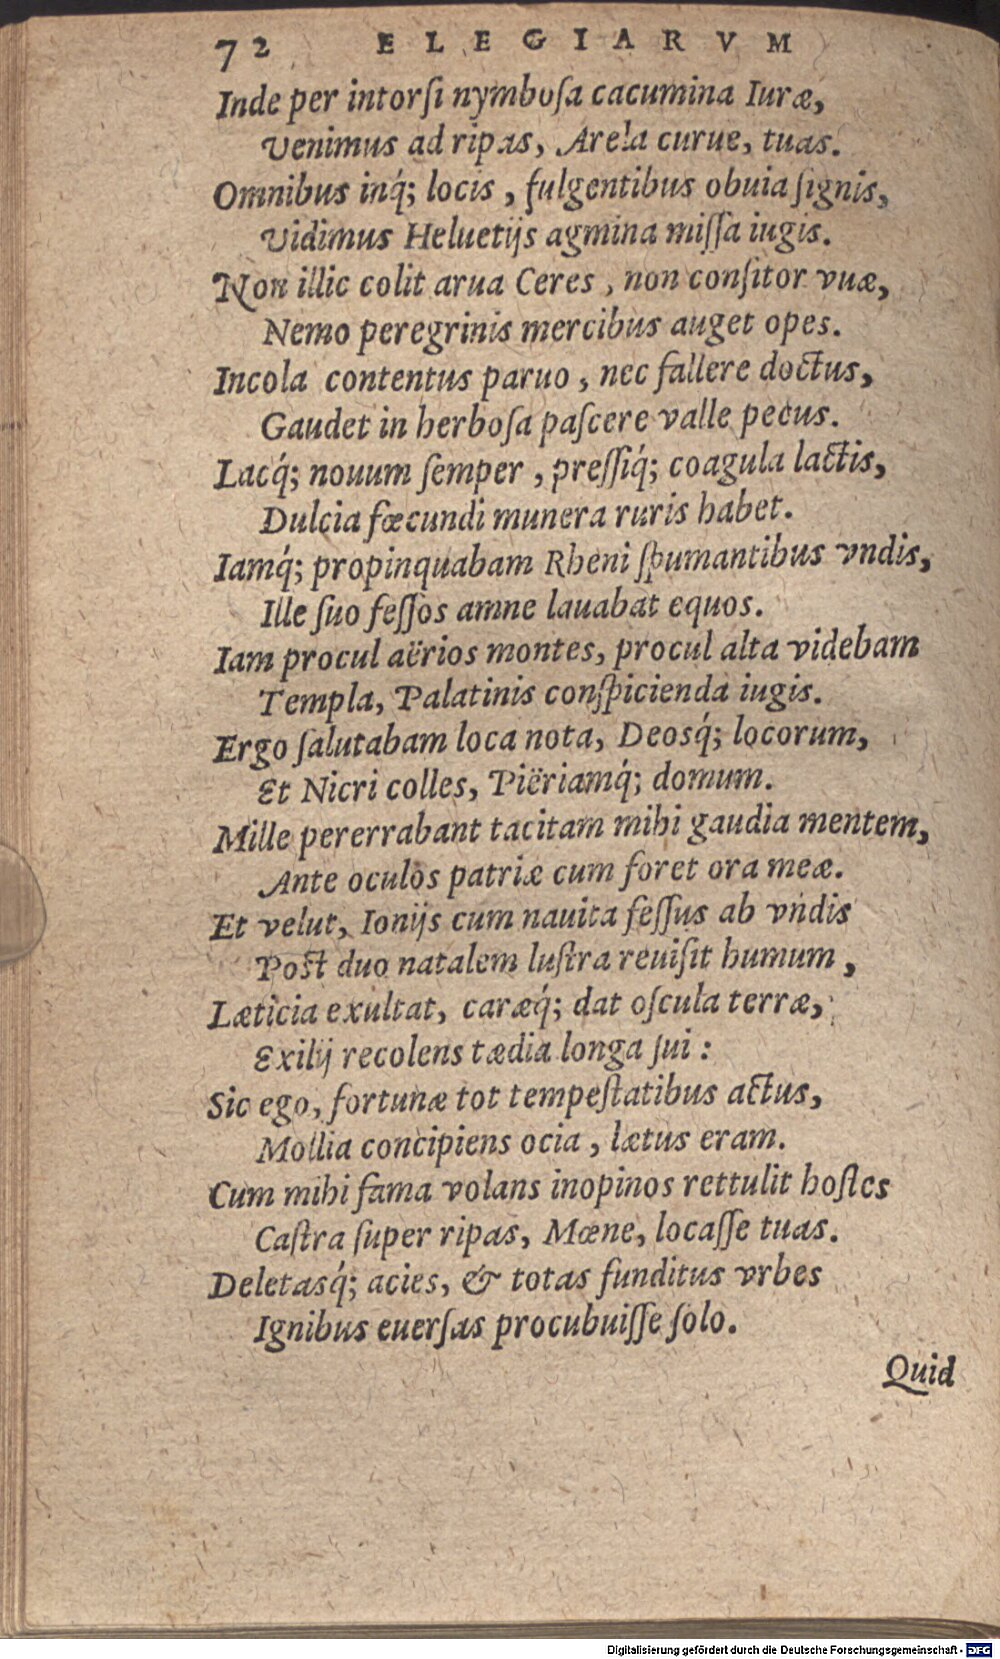 72 ELEGIARVM
Inde per intorſi nymboſa cacumina Iuræ,
Venimus ad ripas, Arela curue, tuas.
Omnibus inq́; locis, fulgentibus obuia ſignis,
Vidimus Heluetijs agmina miſſa iugis.
Non illic colit arua Ceres, non conſitor vuæ,
Nemo peregrinis mercibus auget opes.
Incola contentus paruo, nec fallere doctus,
Gaudet in herboſa paſcere valle pecus.
Lacq́; nouum ſemper, preſſiq́; coagula lactis,
Dulcia fœcundi munera ruris habet.
Iamq́; propinquabam Rheni ſpumantibus vndis,
Ille ſuo feſſos amne lauabat equos.
Iam procul aërios montes, procul alta videbam
Templa, Palatinis conſpicienda iugis.
Ergo ſalutabam loca nota, Deosq́; locorum,
Et Nicri colles, Piëriamq́; domum.
Mille pererrabant tacitam mihi gaudia mentem,
Ante oculos patriæ cum foret ora meæ.
Et velut, Ionijs cum nauita feſſus ab vndis
Poſt duo natalem luſtra reuiſit humum,
Læticia exultat, caræq́; dat oſcula terræ,
Exilij recolens tædia longa ſui:
Sic ego, fortunæ tot tempeſtatibus actus,
Mollia concipiens ocia, lætus eram.
Cum mihi fama volans inopinos rettulit hoſtes
Caſtra ſuper ripas, Mœne, locaſſe tuas.
Deletasq́; acies, & totas funditus vrbes
Ignibus euerſas procubuiſſe ſolo.
Quid
Digitalisierung gefördert durch die Deutsche Forschungsgemeinschaft - DFG